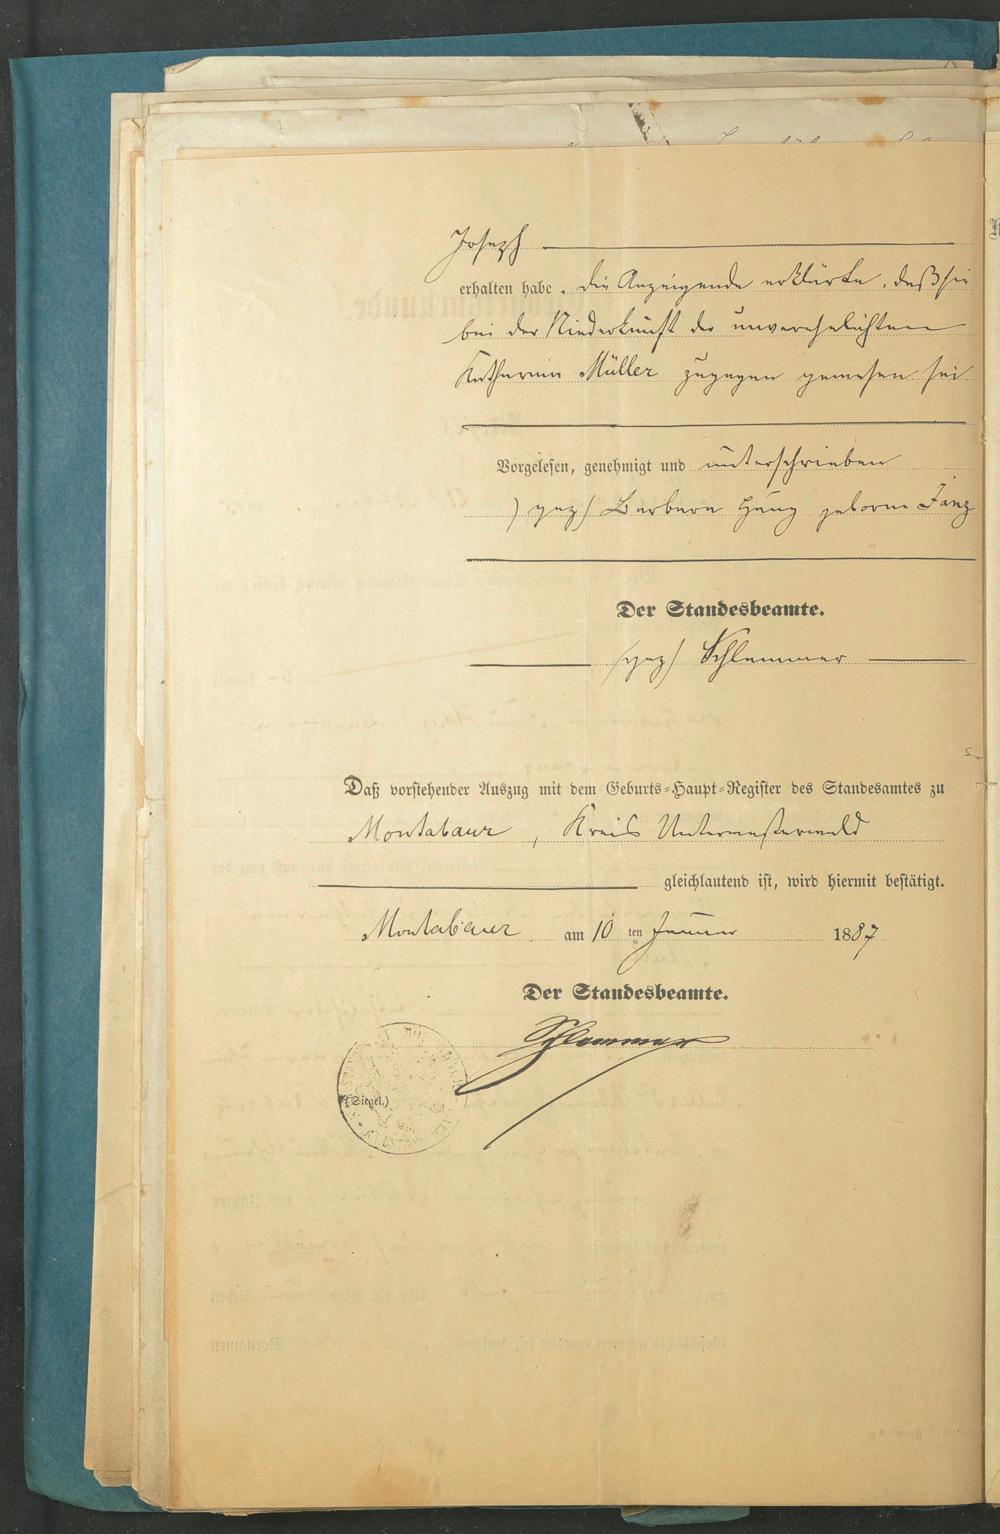 Joseph
erhalten habe. Die Anzeigende erklärte, daß sie
bei der Niederkunft der unverehelichten
Katharina Müller zugegen gewesen sei.
Vorgelesen, genehmigt und unterschrieben
(gez) Barbara geborne
Der Standesbeamte.
(gez) Schlemmer
Daß vorstehender Auszug mit dem Geburts-Haupt-Register des Standesamtes zu
Montabaur, Kreis Unterwesterwald
gleichlautend ist, wird hiermit bestätigt.
Montabaur am 10 ten Januar 1887
Der Standesbeamte.
Schlemmer
(Siegel.)